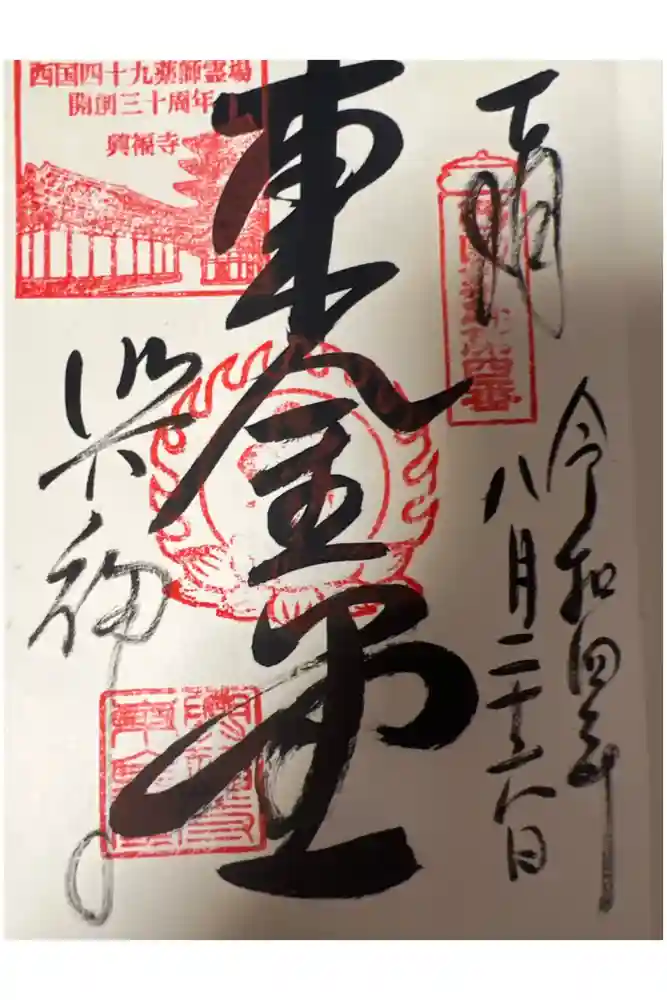 令和四年
八月二十六日
第四番
東金堂
西国四十九薬師霊場
開創三十周年
興福寺
興福寺